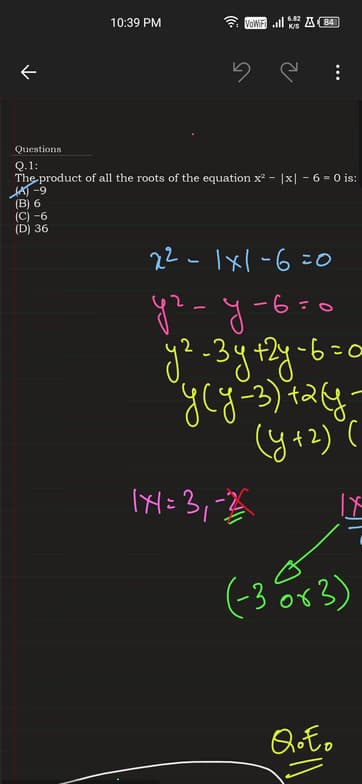 10:39 PM VoWiFi 6.82 K/S 84
Questions
Q.1:
The product of all the roots of the equation x² − |x| − 6 = 0 is:
(A) −9
(B) 6
(C) −6
(D) 36
x² - |x| - 6 = 0
y² - y - 6 = 0
y² - 3y + 2y - 6 = 0
y(y-3) + 2(y-
(y+2) (
|x| = 3, -2 |x
(-3 or 3)
Q.E.